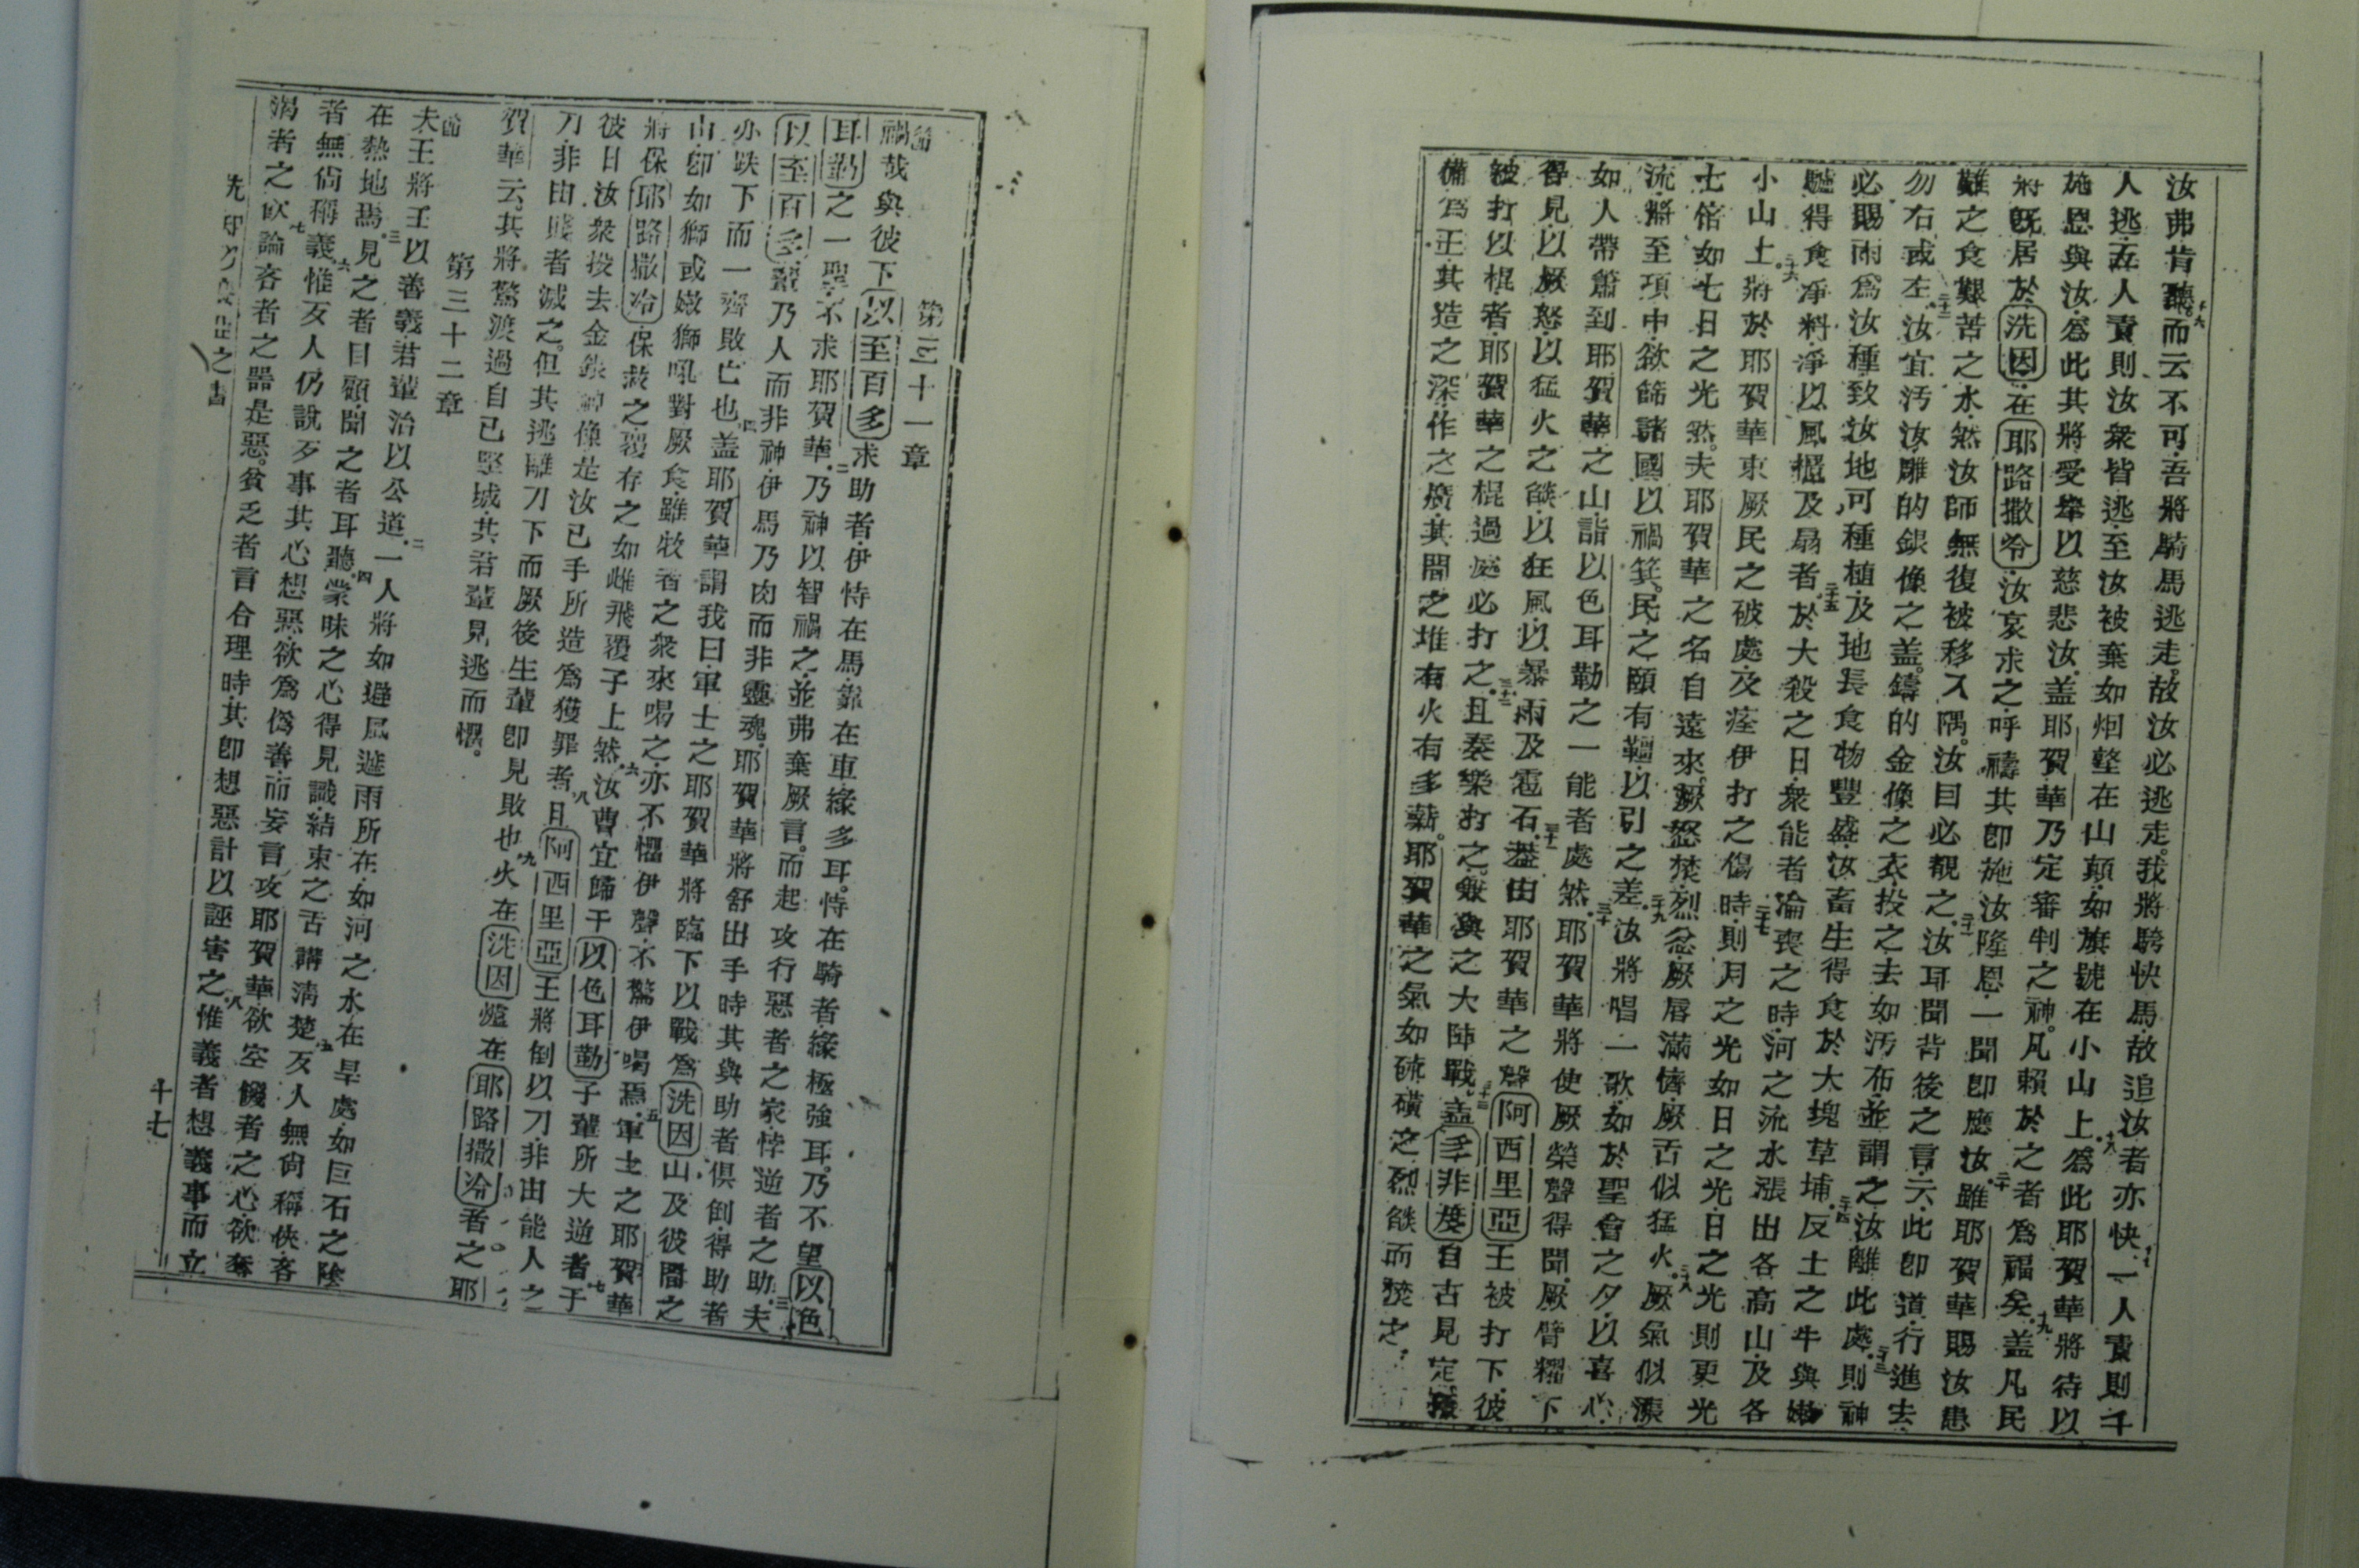 汝弗肯聽而云不可吾將騎馬逃走故汝必逃走我將騎快馬故追汝者亦快一人責則千
人逃五人責則汝衆皆逃至汝被棄如烟墪在山頭如旗號在小山上爲此耶賀華將待以
施恩與汝爲此其將受舉以慈悲汝蓋耶賀華乃定審判之神凡賴於之者爲福矣蓋凡民
將旣居於洗因在耶路撒冷汝哀求之呼禱其卽施汝隆恩一聞卽應汝雖耶賀華賜汝患
難之食艱苦之水然汝師無復被移入隅汝目必覩之汝耳聞背後之言云此卽道行進去
勿右或左汝宜汚汝雕的銀像之蓋鑄的金像之衣投之去如汚布並謂之汝離此處則神
必賜雨爲汝種致汝地可種植及地長食物豐盛汝畜生得食於大塊草埔反土之牛與嫩
驢得食凈料凈以風櫃及扇者於大殺之日衆能者淪喪之時河之流水漲出各高山及各
小山上將於耶賀華束厥民之破處及痊伊打之傷時則月之光如日之光日之光則更光
七倍如七日之光然夫耶賀華之名自遠來厥怒焚烈忿厥唇滿憤厥舌似猛火厥氣似漲
流將至項中欲篩諸國以禍箕民之頤有韁以引之差汝將唱一歌如於聖會之夕以喜心
如人帶簫到耶賀華之山詣以色耳勒之一能者處然耶賀華將使厥榮聲得聞厥臂糶下
得見以厥怒以猛火之燄以狂風以暴雨及雹石蓋由耶賀華之聲阿西里亞王被打下彼
被打以棍者耶賀華之棍過處必打之且奏樂打之與之大陣戰蓋多非度自古見定
備爲王其造之深作之廣其間之堆有火有多薪耶賀華之氣如硫磺之烈燄而燒之
第三十一章
節禍哉與彼下以至百多求助者伊恃在馬靠在車緣多耳恃在騎者緣極強耳乃不望以色
耳勒之一聖不求耶賀華乃神以智禍之並弗棄厥言而起攻行惡者之家悖逆者之助夫
以至百多輩乃人而非神伊馬乃肉而非靈魂耶賀華將舒出手時其與助者俱倒得助者
亦跌下而一齊敗亡也蓋耶賀華謂我曰軍士之耶賀華將臨下以戰爲洗因山及彼間之
山卽如獅或嫩獅吼對厥食雖牧者之衆來喝之亦不懼伊聲不驚伊喝焉軍士之耶賀華
將保耶路撒冷保救之覆存之如雌飛覆子上然汝曹宜歸于以色耳勒子輩所大逆者于
彼日汝衆投去金銀神像是汝已手所造爲獲罪者且阿西里亞王將倒以刀非由能人之
刀非由賤者滅之但其逃離刀下而厥後生輩卽見敗也火在洗因爐在耶路撒冷者之耶
賀華云其將驚渡過自己堅城其君輩見逃而懼
第三十二章
節夫王將王以善義君輩治以公道一人將如避風遮雨所在如河之水在旱處如巨石之陰
在熱地焉見之者目顧聞之者耳聽蒙昧之心得見識結束之舌講淸楚歹人無尙稱俠吝
者無尙稱義惟歹人仍說歹事其心想惡欲爲僞善而妄言攻耶賀華欲空饑者之心欲奪
渴者之飲論吝者之器是惡貧乏者言合理時其卽想惡計以誣害之惟義者想義事而立
十七